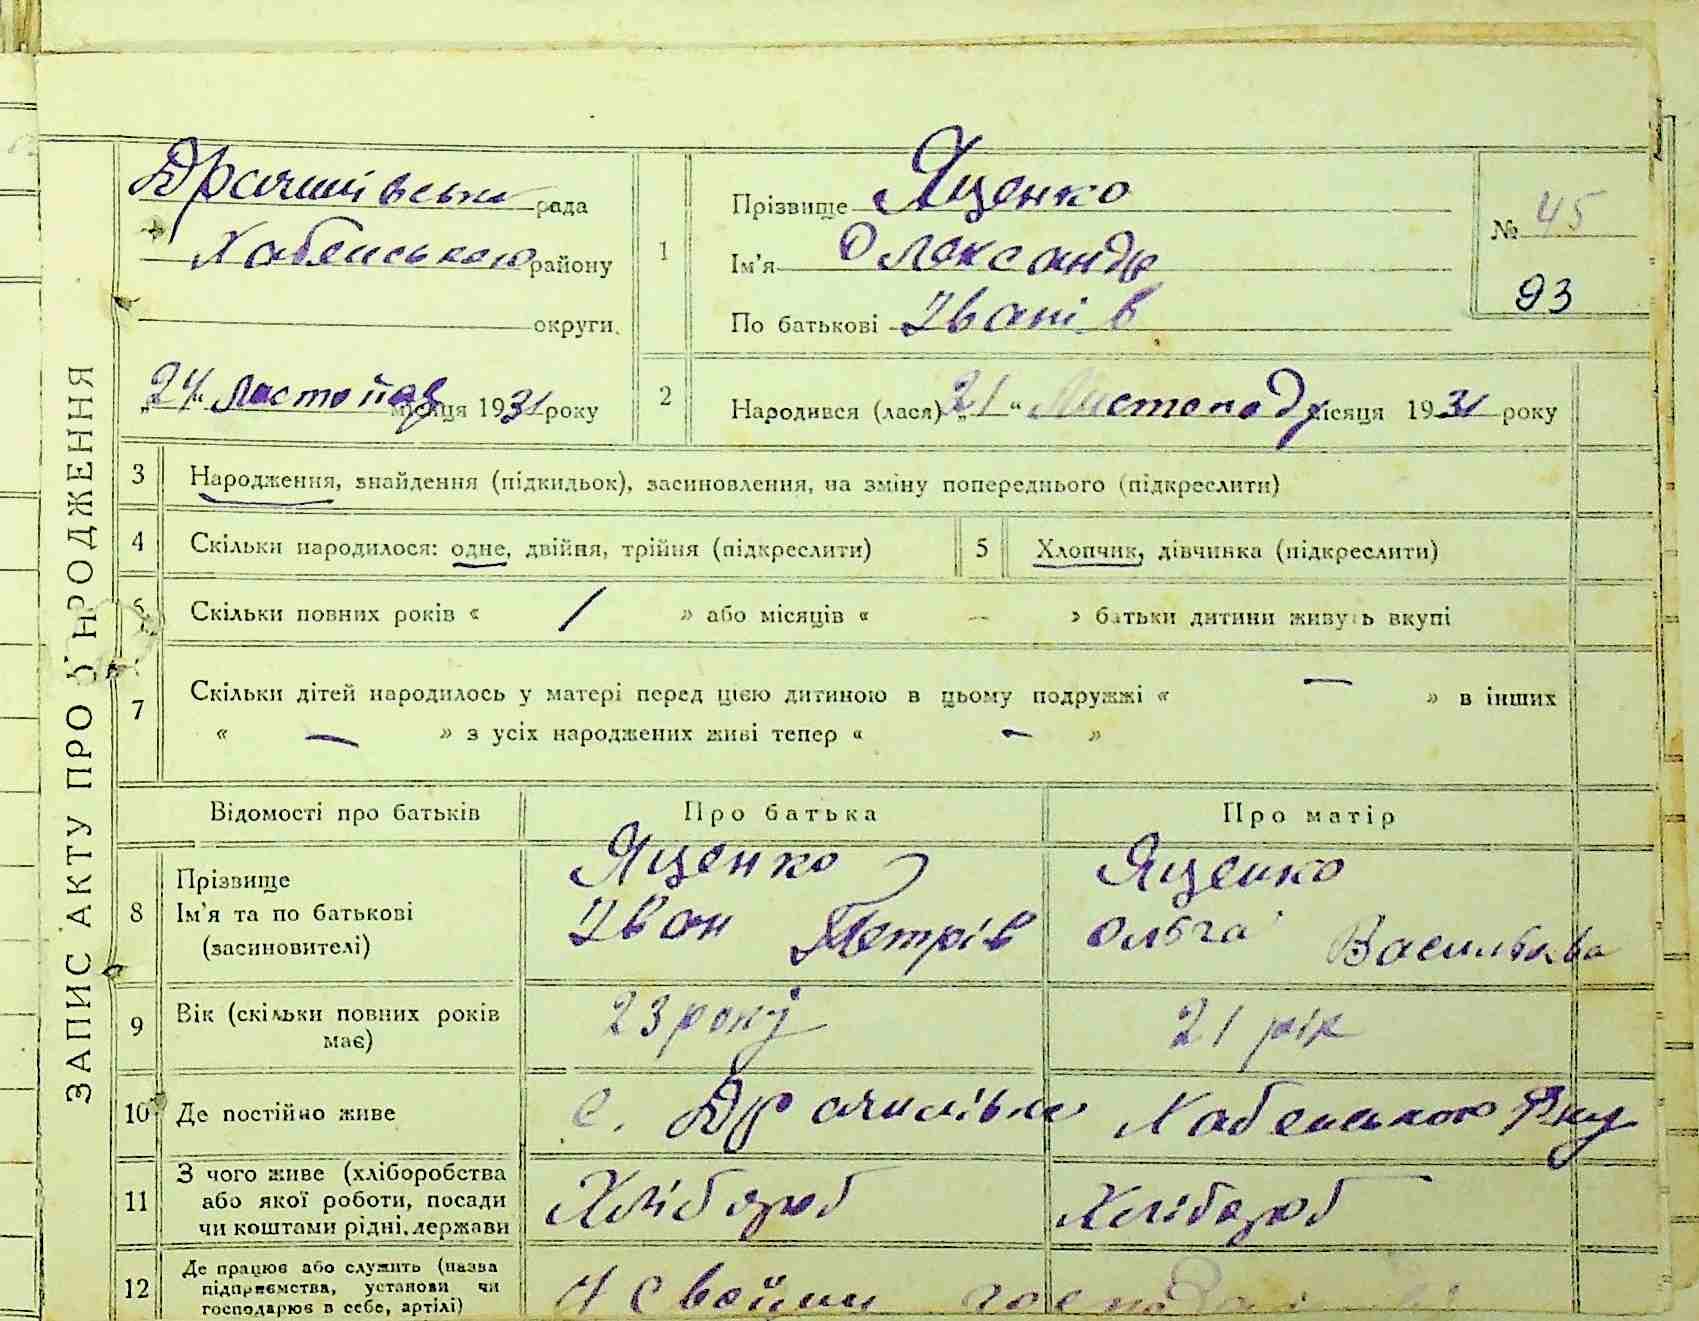 ЗАПИС АКТУ ПРО НАРОДЖЕННЯ
рада
Хабенського району
округи
№ 45
93
1
Прізвище Яценко
Ім'я Олександр
По батькові Іванів
"24" Листопад місяця 1931 року
2
Народився (лася) "21" Листопаду місяця 1931 року
3 Народження, знайдення (підкидьок), засиновлення, на зміну попереднього (підкреслити)
4 Скільки народилося: одне, двійня, трійня (підкреслити)
5 Хлопчик, дівчинка (підкреслити)
6 Скільки повних років « 1 » або місяців « — » батьки дитини живуть вкупі
7 Скільки дітей народилось у матері перед цією дитиною в цьому подружжі « — » в інших
« — » з усіх народжених живі тепер « - »
Відомості про батьків Про батька Про матір
8 Прізвище
Ім'я та по батькові
(засиновителі)
Яценко
Іван Петрів
Яценко
Ольга Васильева
9 Вік (скільки повних років
має)
23 року
21 рік
10 Де постійно живе
с. Хабенського Р-ну
11 З чого живе (хліборобства
або якої роботи, посади
чи коштами рідні, держави
Хлібороб
Хлібороб
12 Де працює або служить (назва
підприємства, установи чи
господарює в себе, артілі)